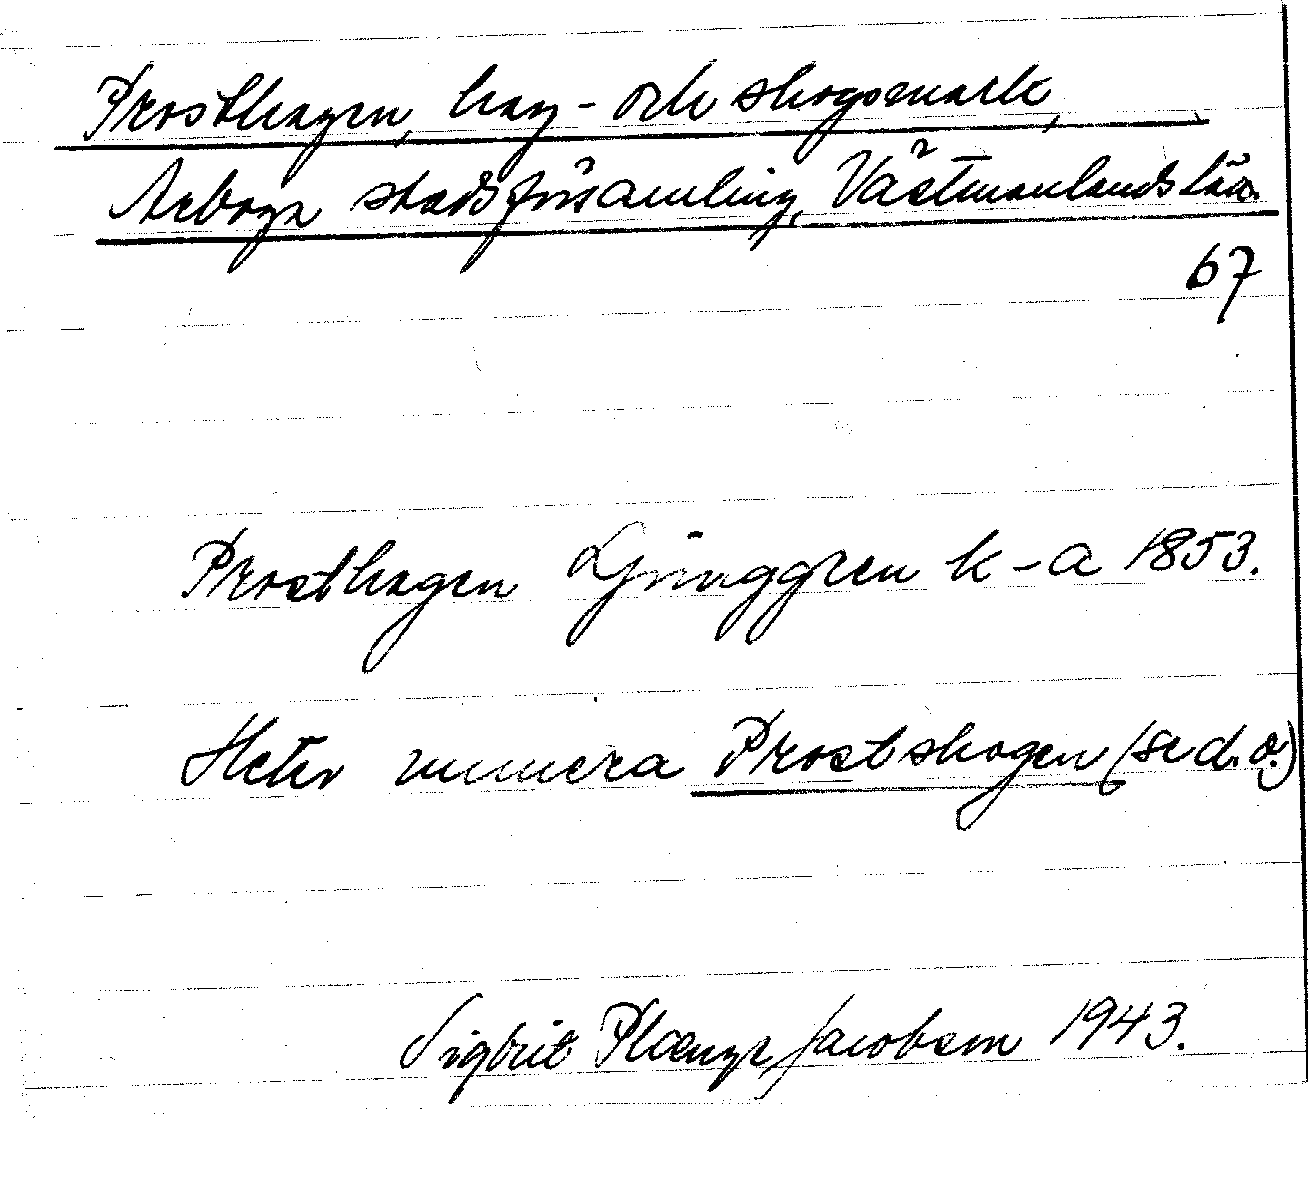 Prosthagen, hag- och skogsmark,
Arboga stadsförsamling, Västmanlands län.
67
Prosthagen Ljunggren k-a 1853.
Heter numera Prostskogen (se d.o.)
Sigbrit Plænge Jacobson 1943.